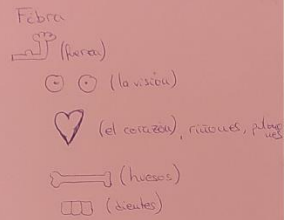 Febra
(fuerza)
(la visión)
(el corazón), riñones, pulmo
nes
(huesos)
(dientes)